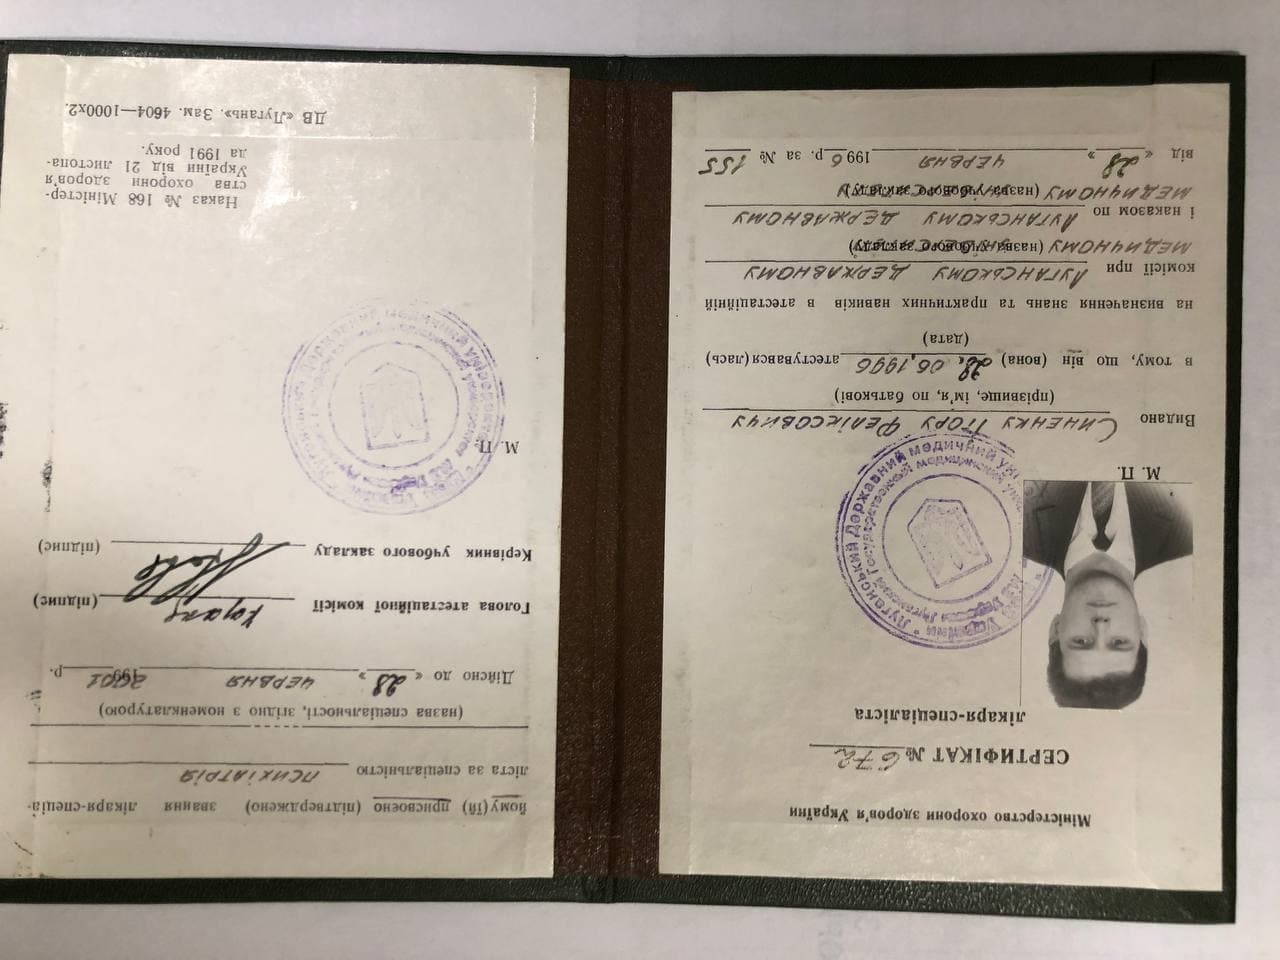 Міністерство охорони здоров'я України
СЕРТИФІКАТ № 672
лікаря-спеціаліста
М. П.
Видано Синенку Ігору Феліксовичу
(прізвище, ім'я, по батькові)
в тому, що він (вона) 28. 06.1996 атестувався(лась)
(дата)
на визначення знань та практичних навиків в атестаційній
комісії при Луганському державному
медичному (назва учбового закладу)
і наказом по Луганському державному
медичному (назва учбового закладу)
від «28» червня 1996 р. за № 155
йому (їй) присвоєно (підтверджено) звання лікаря-спеціа-
ліста за спеціальністю психіатрія
(назва спеціальності, згідно з номенклатурою)
Дійсно до «28» червня 2001 р.
Голова атестаційної комісії (підпис)
Керівник учбового закладу (підпис)
М. П.
Наказ № 168 Міністер-
ства охорони здоров'я
України від 21 листопа-
да 1991 року.
ДВ «Лугань». Зам. 4604—1000х2.